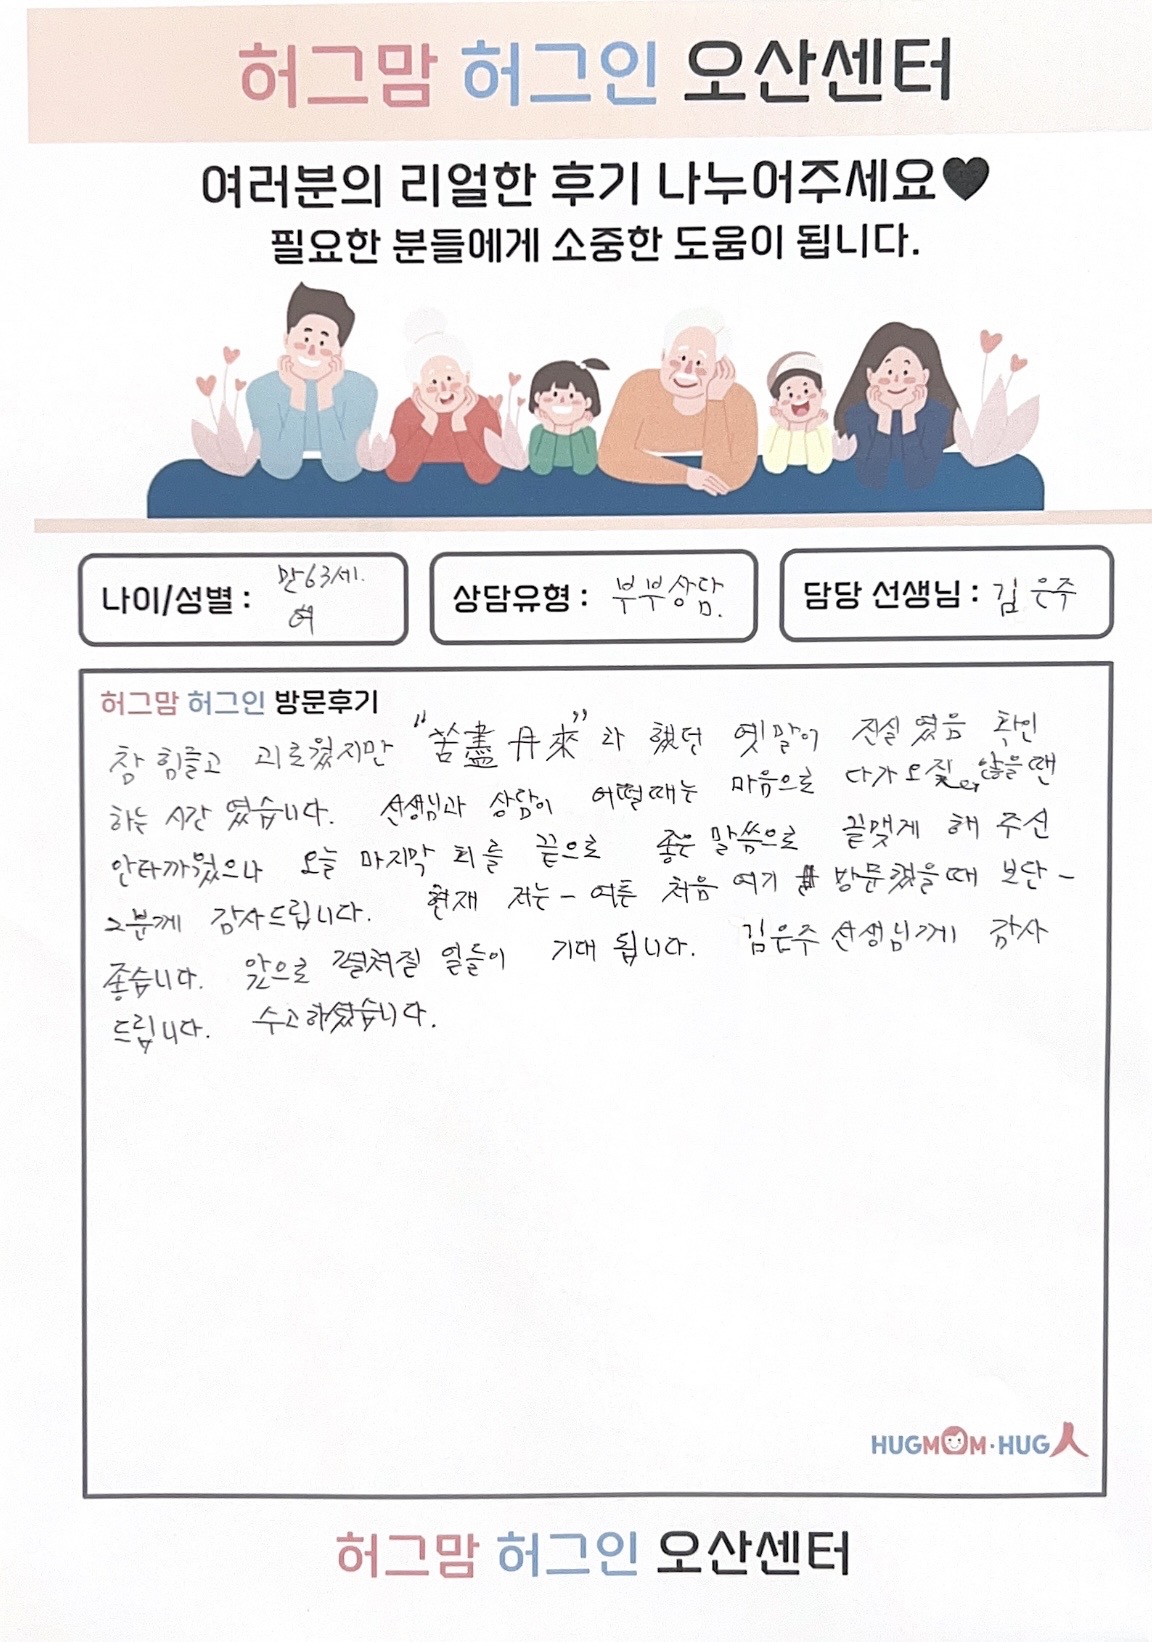 허그맘 허그인 오산센터
여러분의 리얼한 후기 나누어주세요♥
필요한 분들에게 소중한 도움이 됩니다.
나이/성별 : 만63세. 여
상담유형 : 부부상담.
담당 선생님 : 김은주
허그맘 허그인 방문후기
참 힘들고 괴로웠지만 "苦盡丹來"라 했던 옛말이 진실였음 확인
하는 시간 였습니다. 선생님과 상담이 어떨때는 마음으로 다가오질 않을땐
안타까웠으나 오늘 마지막 회를 끝으로 좋은 말씀으로 끝맺게 해 주신
그분께 감사드립니다. 현재 저는 - 여튼 처음 여기 방문했을때 보단 -
좋습니다. 앞으로 펼쳐질 일들이 기대 됩니다. 김은주 선생님께 감사
드립니다. 수고하셨습니다.
HUGMOM·HUG人
허그맘 허그인 오산센터